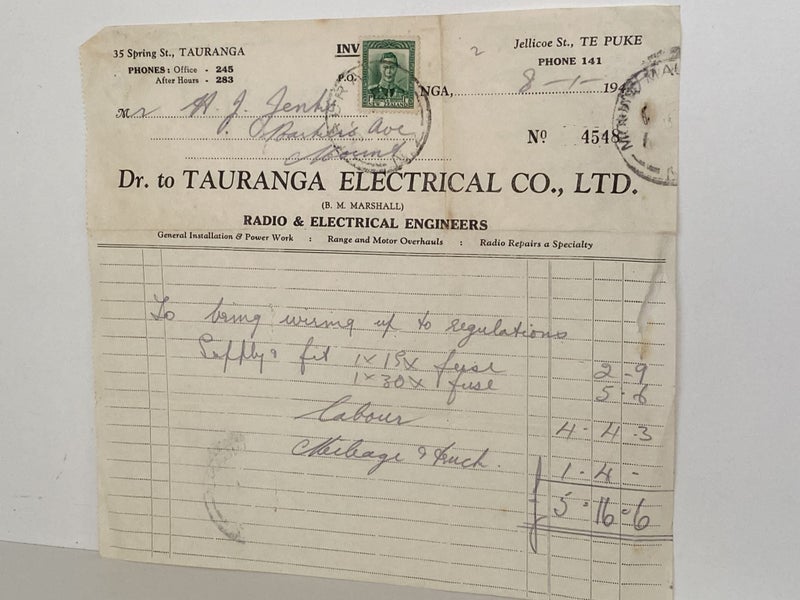 35 Spring St., TAURANGA
PHONES: Office - 245
After Hours - 283
INV
P.O.
2
Jellicoe St., TE PUKE
PHONE 141
NGA, 8-1- 194
Mr H. J. Jenks
Ave
Mount
No 4548
Dr. to TAURANGA ELECTRICAL CO., LTD.
(B. M. MARSHALL)
RADIO & ELECTRICAL ENGINEERS
General Installation & Power Work : Range and Motor Overhauls : Radio Repairs a Specialty
To bring wiring up to regulations
Supply & fit 1x15x fuse 2-9
1x30x fuse 5-6
labour 4-4-3
Mileage & truck. 1-4-
£ 5-16-6